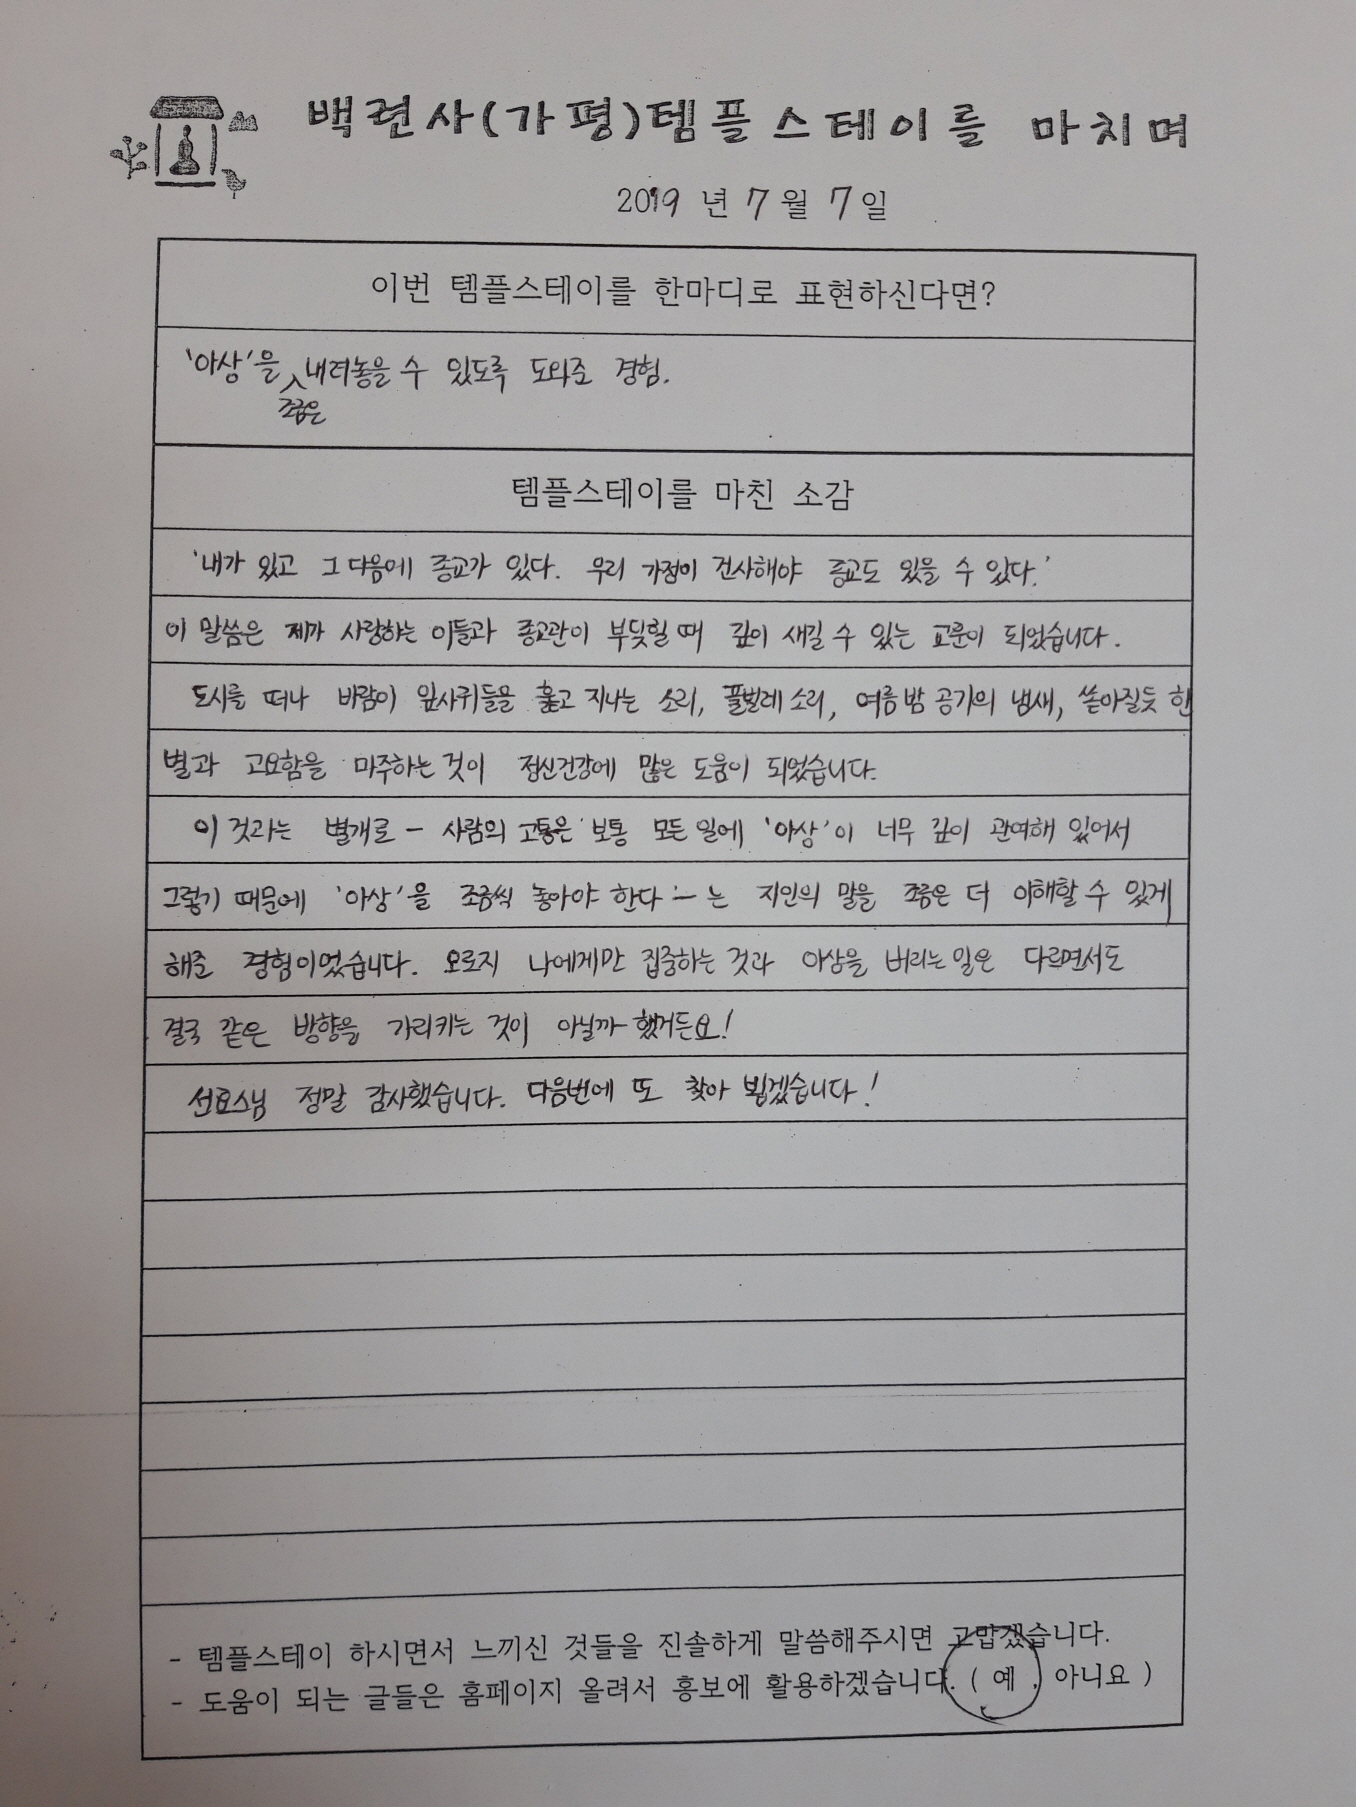 백련사(가평)템플스테이를 마치며
2019 년 7 월 7 일
이번 템플스테이를 한마디로 표현하신다면?
'아상'을 조금은 내려놓을 수 있도록 도와준 경험.
템플스테이를 마친 소감
'내가 있고 그 다음에 종교가 있다. 우리 가정이 건사해야 종교도 있을 수 있다.'
이 말씀은 제가 사랑하는 이들과 종교관이 부딪힐 때 깊이 새길 수 있는 교훈이 되었습니다.
도시를 떠나 바람이 잎사귀들을 훑고 지나는 소리, 풀벌레 소리, 여름 밤 공기의 냄새, 쏟아질듯 한
별과 고요함을 마주하는 것이 정신건강에 많은 도움이 되었습니다.
이 것과는 별개로 - 사람의 고통은 보통 모든 일에 '아상'이 너무 깊이 관여해 있어서
그렇기 때문에 '아상'을 조금씩 놓아야 한다 - 는 지인의 말을 조금은 더 이해할 수 있게
해준 경험이었습니다. 오로지 나에게만 집중하는 것과 아상을 버리는 일은 다르면서도
결국 같은 방향을 가리키는 것이 아닐까 했거든요!
선효스님 정말 감사했습니다. 다음번에 또 찾아 뵙겠습니다!
- 템플스테이 하시면서 느끼신 것들을 진솔하게 말씀해주시면 고맙겠습니다.
- 도움이 되는 글들은 홈페이지 올려서 홍보에 활용하겠습니다. ( 예 , 아니요 )